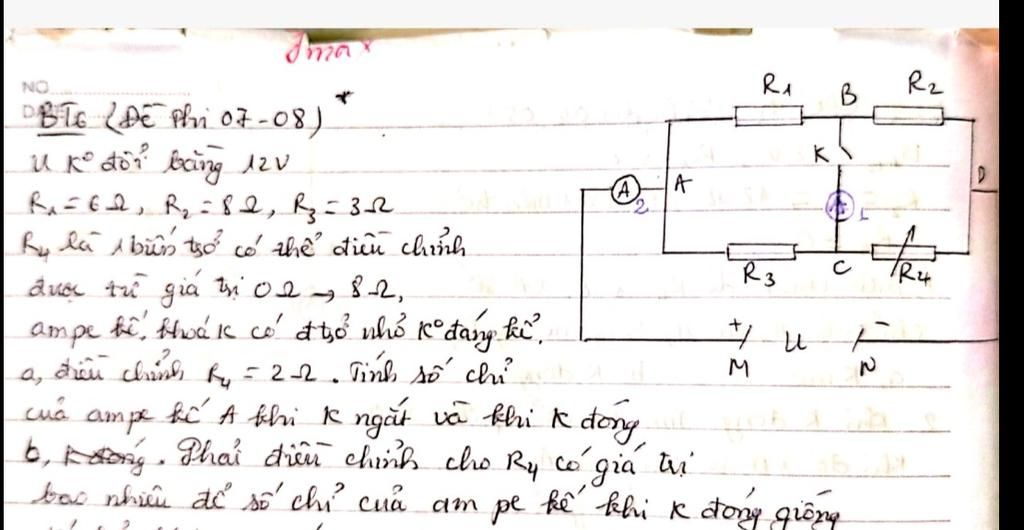 Imax
NO
BT6 (Đề Phi 07-08) *
U K° đổi bằng 12V
R1 = 6Ω, R2 = 8Ω, R3 = 3Ω
R4 là 1 biến trở có thể điều chỉnh
được từ giá trị 0Ω → 8Ω,
ampe kế, khoá K có đtrở nhỏ K° đáng kể.
a, điều chỉnh R4 = 2Ω. Tính số chỉ
của ampe kế A khi K ngắt và khi K đóng
b, K đóng. Phải điều chỉnh cho R4 có giá trị
bao nhiêu để số chỉ của am pe kế khi K đóng giống
R1 B R2
K
A 2 A A 1 D
R3 C R4
+ U -
M N